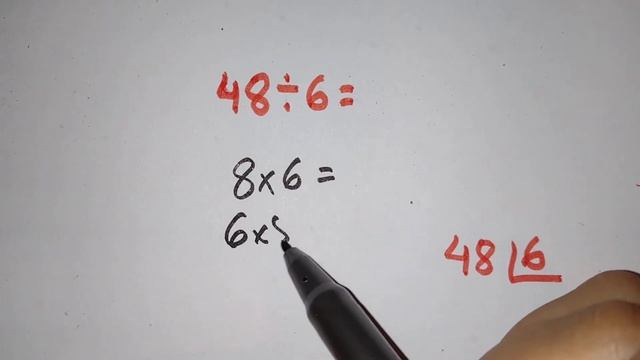 48÷6=
8×6=
6×
48 6